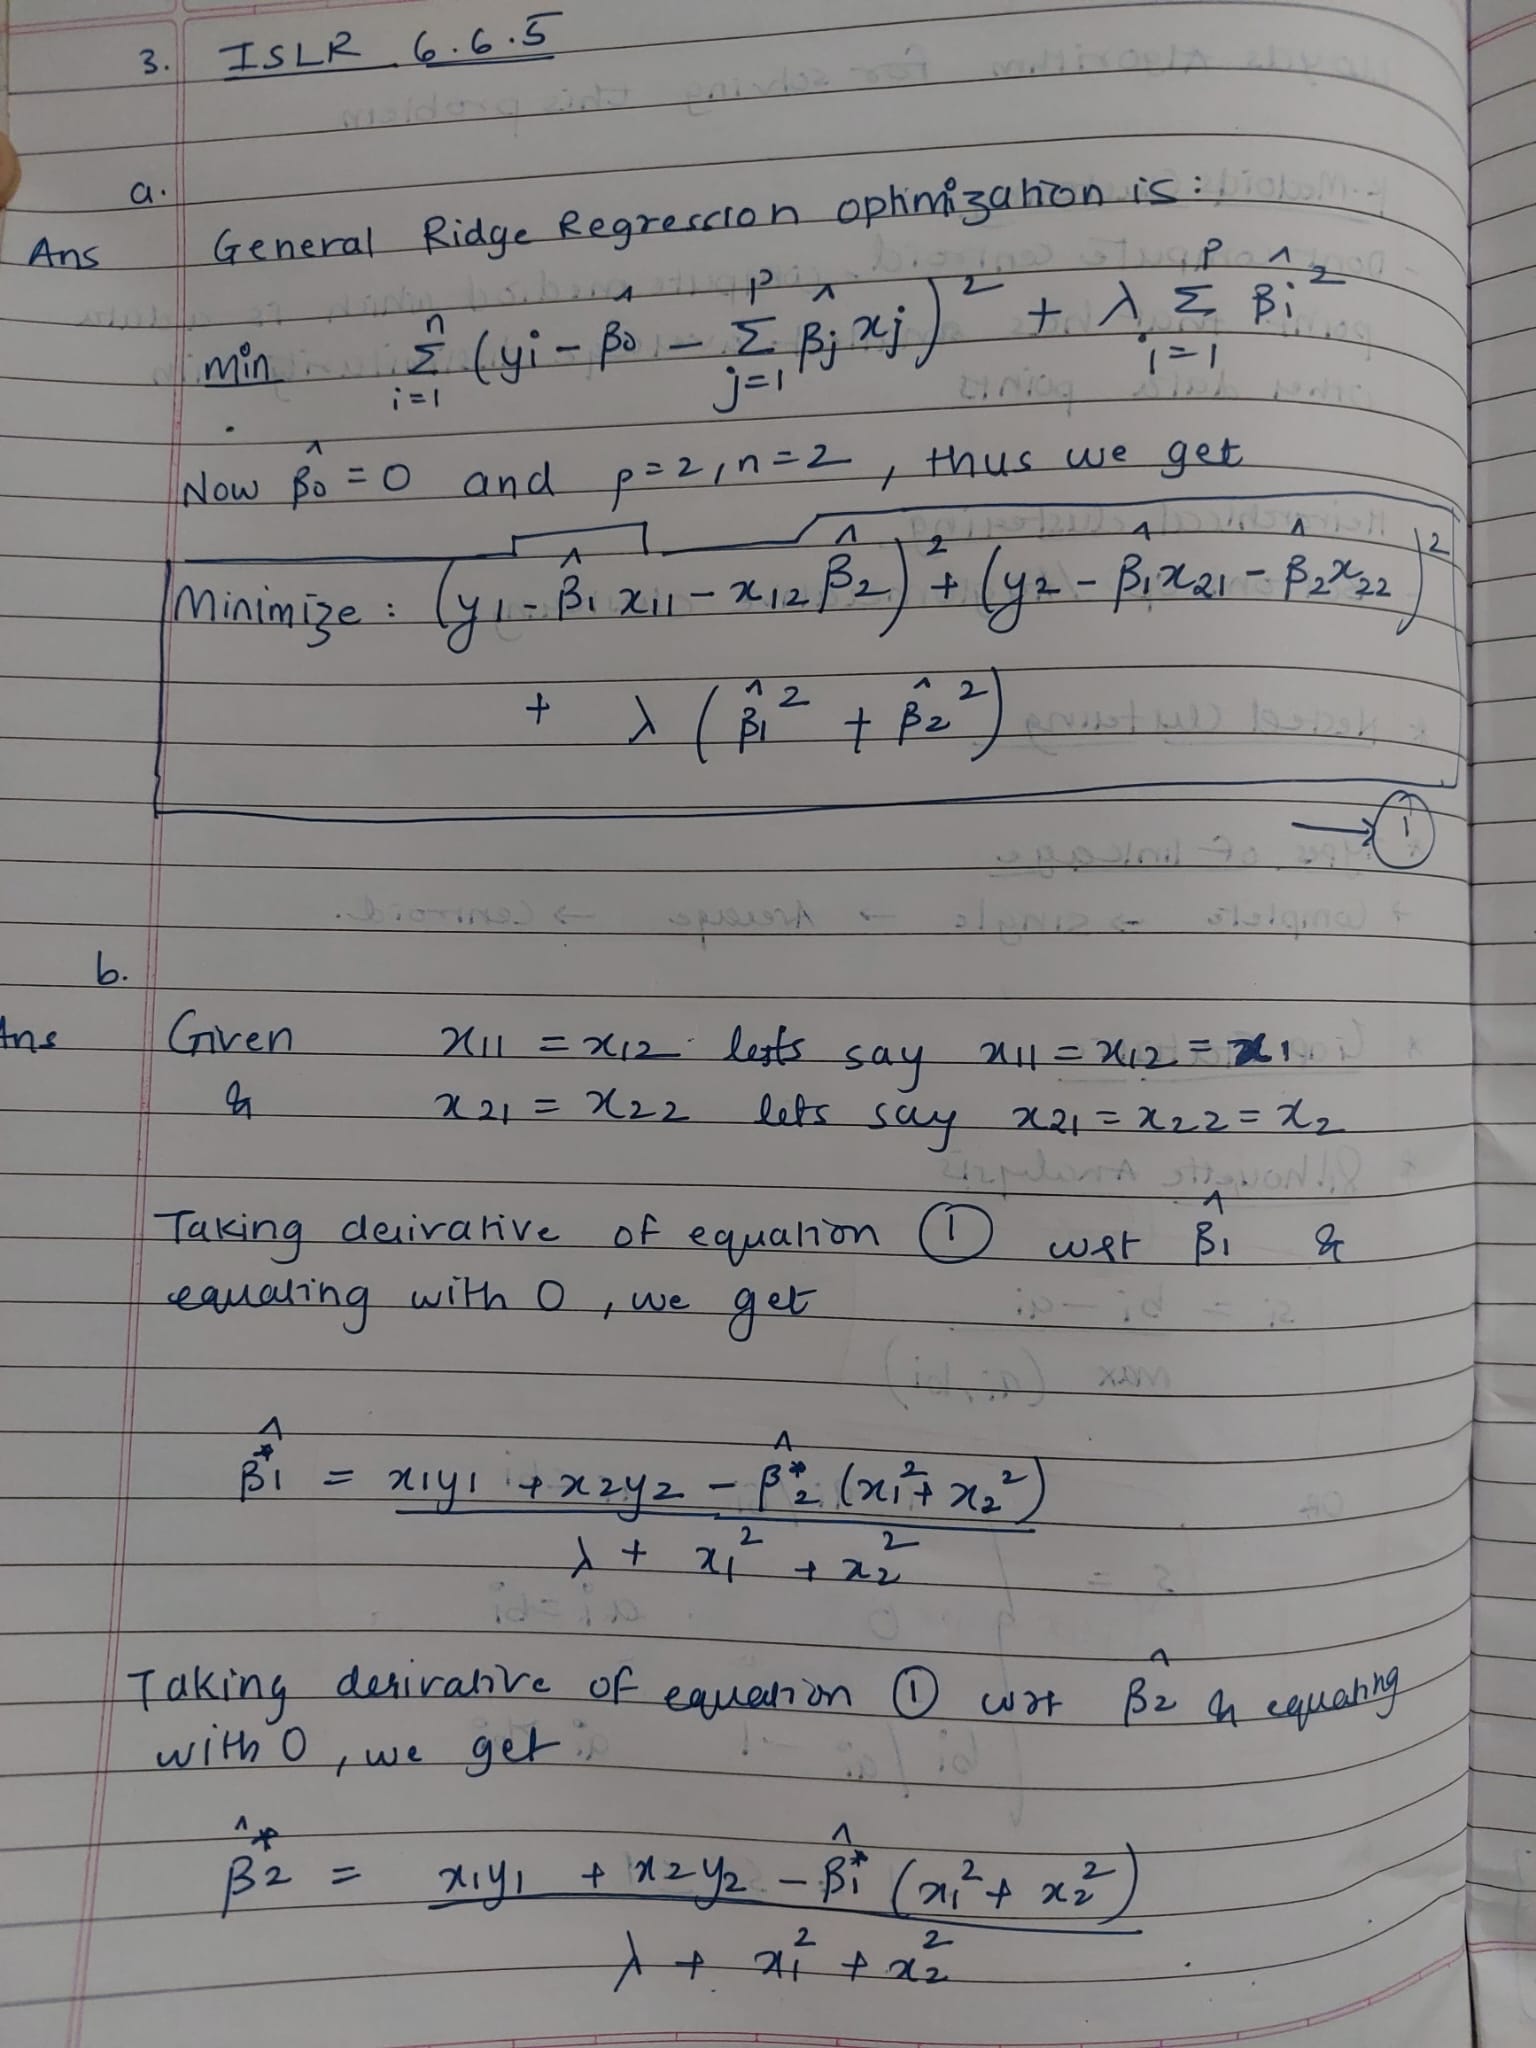 3. ISLR 6.6.5
a.
Ans General Ridge Regression optimization is:
min Σ_{i=1}^{n} (yi − β̂0 − Σ_{j=1}^{p} β̂j xj)² + λ Σ_{i=1}^{p} β̂i²
Now β̂0 = 0 and p=2, n=2, thus we get
Minimize: (y1 − β̂1 x11 − x12 β̂2)² + (y2 − β̂1 x21 − β̂2 x22)²
+ λ (β̂1² + β̂2²)
→ ①
b.
Ans Given x11 = x12 lets say x11 = x12 = x1
& x21 = x22 lets say x21 = x22 = x2
Taking derivative of equation ① wrt β̂1 &
equating with 0, we get
β̂1* = x1y1 + x2y2 − β̂2* (x1² + x2²)
λ + x1² + x2²
Taking derivative of equation ① wrt β̂2 & equating
with 0, we get
β̂2* = x1y1 + x2y2 − β̂1* (x1² + x2²)
λ + x1² + x2²